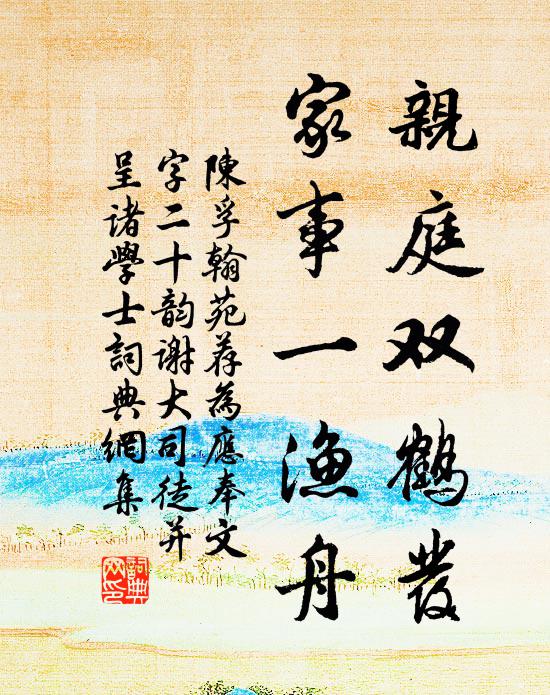 親庭双鶴发
家事一漁舟
陳孚翰苑荐為應奉文
字二十韵謝大司徒并
呈诸學士詞典網集
詞典
网印